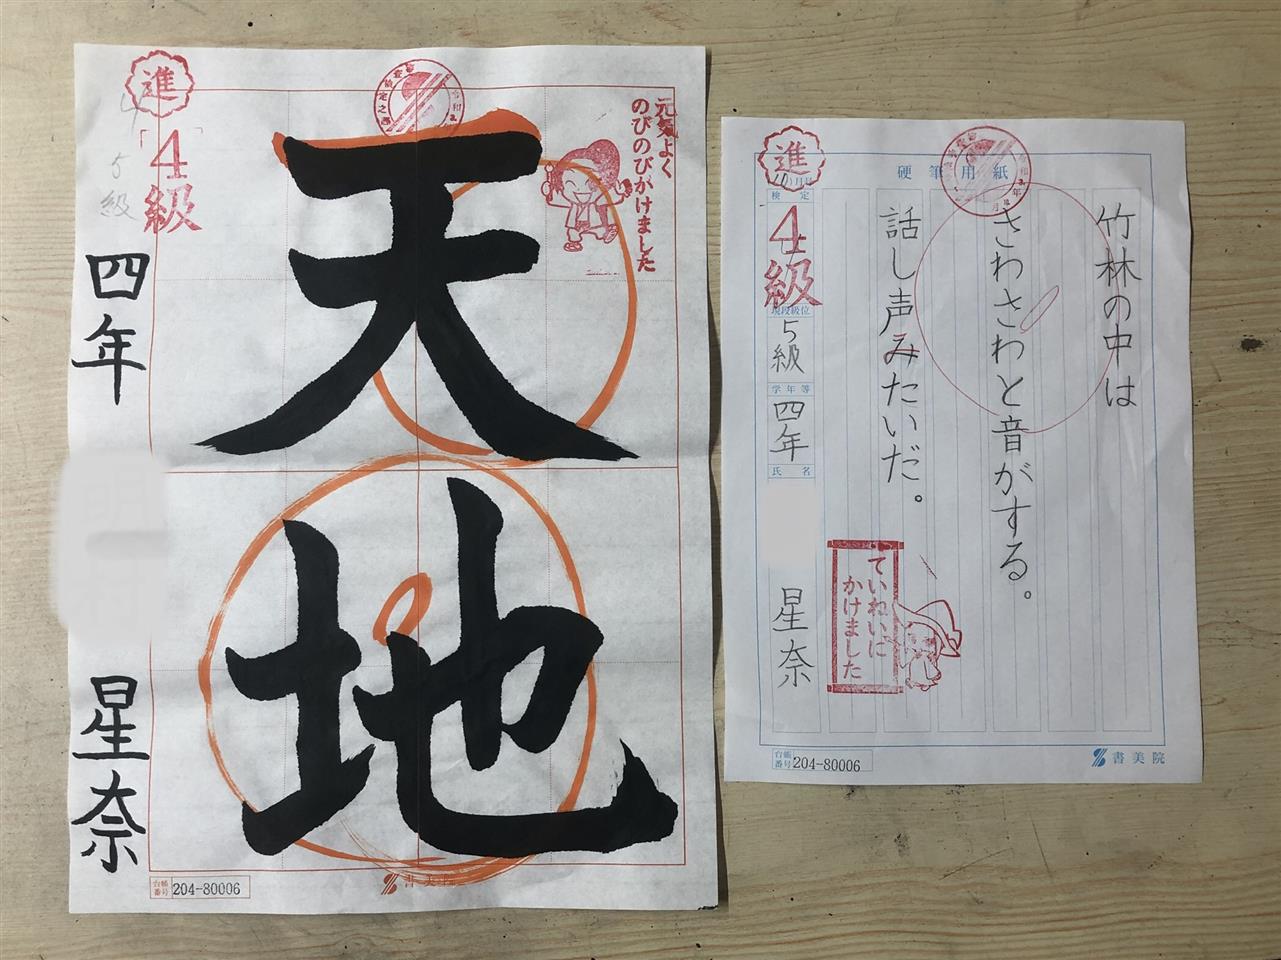 進
「4級」
5級
四年
星奈
天地
元気よく
のびのびがけました
台帳番号 204-80006
書美院
硬筆用紙
竹林の中は
さわさわと音がする。
話し声みたいだ。
進
10月号
検定
4級
現段級位
5級
学年等
四年
氏名
星奈
ていねいに
かけました
台帳番号 204-80006
書美院